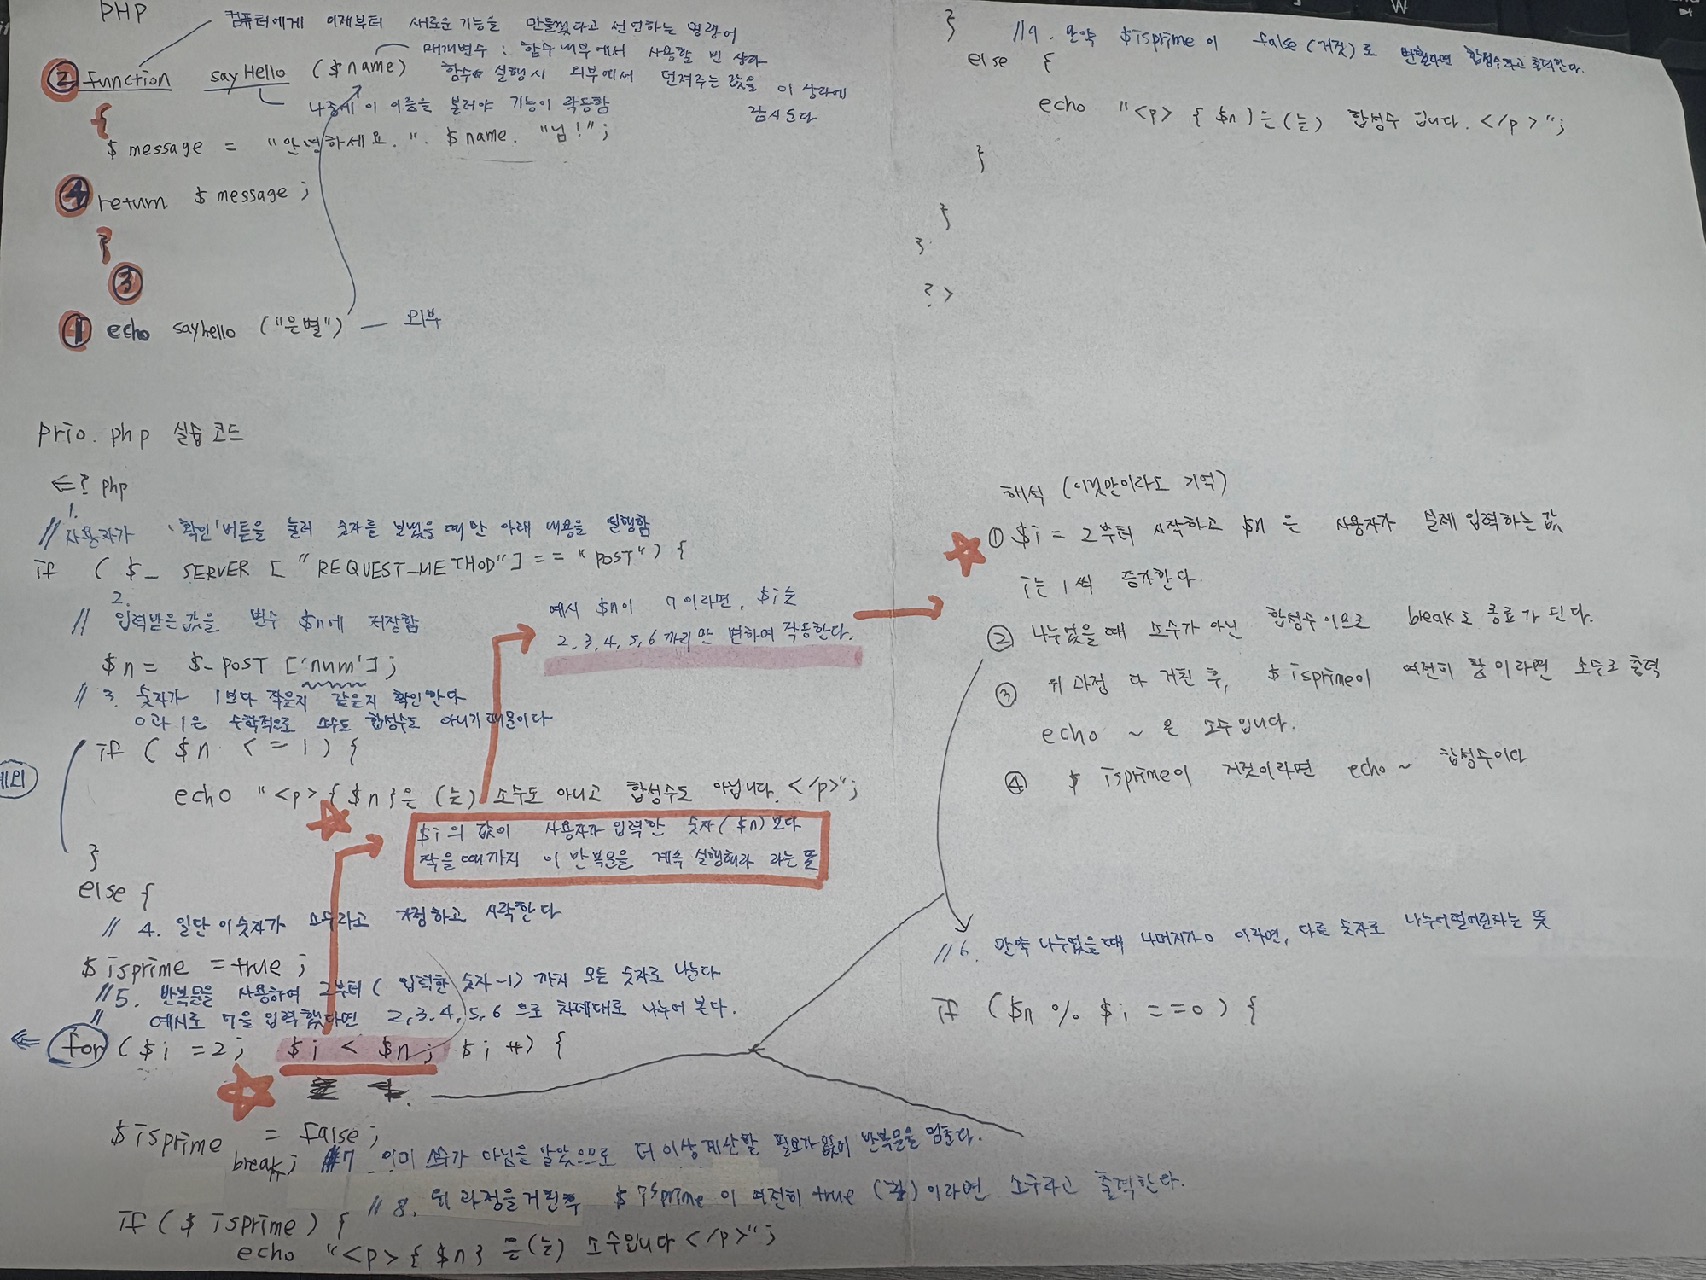 PHP
컴퓨터에게 이제부터 새로운 기능을 만들겠다고 선언하는 명령어
매개변수 : 함수 내부에서 사용할 빈 상자
② function sayHello ($name) 함수를 실행시 외부에서 던져주는 값을 이 상자에
나중에 이 이름을 불러야 기능이 작동함
담긴다
{
$message = "안녕하세요." . $name. "님!";
④ return $message;
}
③
① echo sayhello ("은별") — 외부
prio. php 실습 코드
<? php
1.
// 사용자가 '확인' 버튼을 눌러 숫자를 보냈을 때만 아래 내용을 실행함
if ($_ SERVER ["REQUEST_METHOD"] == "POST") {
2.
// 입력받은 값을 변수 $n에 저장함
$n = $_POST ['num'];
// 3. 숫자가 1보다 작은지 같은지 확인한다
0과 1은 수학적으로 소수도 합성수도 아니기 때문이다
if ($n <= 1) {
예외
echo "<p>{$n}은 (는) 소수도 아니고 합성수도 아닙니다.</p>";
}
$i의 값이 사용자가 입력한 숫자($n)보다
작을때까지 이 반복문을 계속 실행해라 라는 뜻
예시 $n이 7이라면, $i는
2,3,4,5,6 까지만 변하며 작동한다.
else {
// 4. 일단 이 숫자가 소수라고 가정하고 시작한다
$isprime = true;
// 5. 반복문을 사용하여 2부터 (입력한 숫자-1) 까지 모든 숫자로 나눈다
// 예시로 7을 입력했다면 2,3,4,5,6 으로 차례대로 나누어 본다.
for ($i = 2; $i < $n; $i ++) {
$isprime = false;
break; //7 이미 소수가 아님을 알았으므로 더 이상 계산할 필요가 없이 반복문을 멈춘다.
// 8. 위 과정을 거친 후 $isprime 이 여전히 true (참)이라면 소수라고 출력한다.
if ($isprime) {
echo "<p>{$n} 은(는) 소수입니다</p>";
} //9. 만약 $isprime 이 false (거짓)로 변했다면 합성수라고 출력한다.
else {
echo "<p> {$n}은(는) 합성수 입니다.</p>";
}
}
}
?>
해석 (이것만이라도 기억)
① $i = 2부터 시작하고 $n 은 사용자가 실제 입력하는 값
i는 1씩 증가한다.
② 나누었을 때 소수가 아닌 합성수이므로 break로 종료가 된다.
③ 위 과정 다 거친 후, $isprime이 여전히 참이라면 소수로 출력
echo ~ 은 소수입니다.
④ $isprime이 거짓이라면 echo ~ 합성수이다
//6. 만약 나누었을 때 나머지가 0 이라면, 다른 숫자로 나누어떨어진다는 뜻
if ($n % $i ==0) {